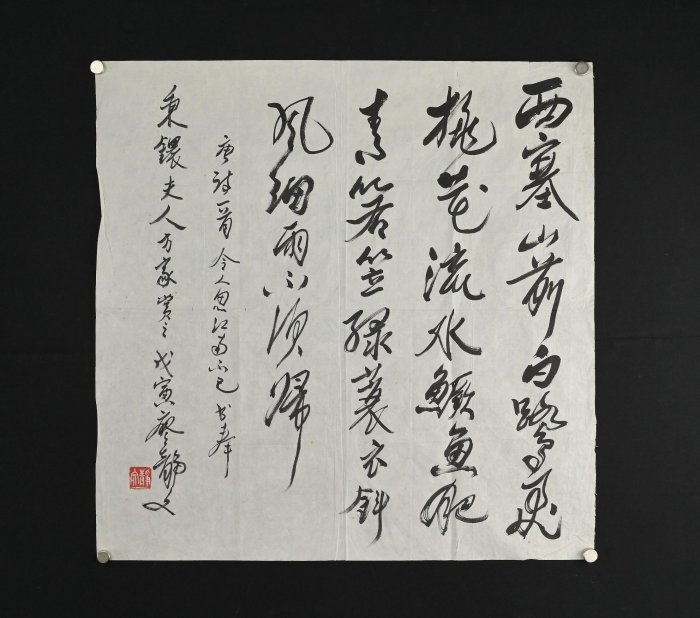 西塞山前白鹭飞
桃花流水鳜鱼肥
青箬笠绿蓑衣斜
风细雨不须归
唐诗一首 令人忽江南不已 书奉
东铌夫人方家赏之 戊寅廖静文